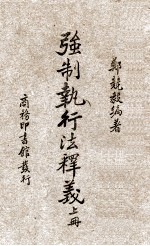 鄭競毅編著
強制執行法釋義上册
商務印書館發行